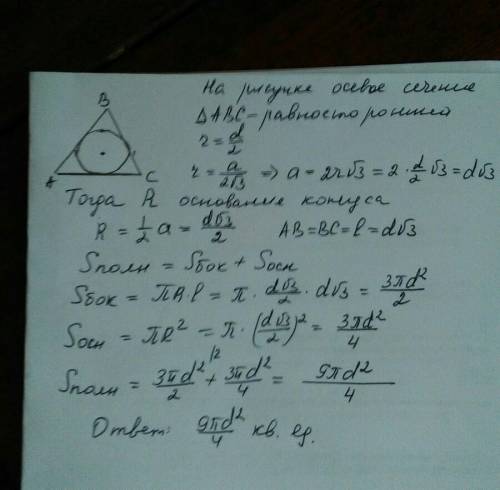 На рисунке осевое сечение
B
ΔABC - равносторонний
r = d/2
A
C
r = a/2√3 => a = 2r√3 = 2·d/2 √3 = d√3
Тогда R основание конуса
R = 1/2 a = d√3/2    AB = BC = l = d√3
Sполн = Sбок + Sосн
Sбок = πRl = π · d√3/2 · d√3 = 3πd²/2
Sосн = πR² = π · (d√3/2)² = 3πd²/4
Sполн = 3πd²/2 |2 + 3πd²/4 = 9πd²/4
Ответ: 9πd²/4 кв. ед.